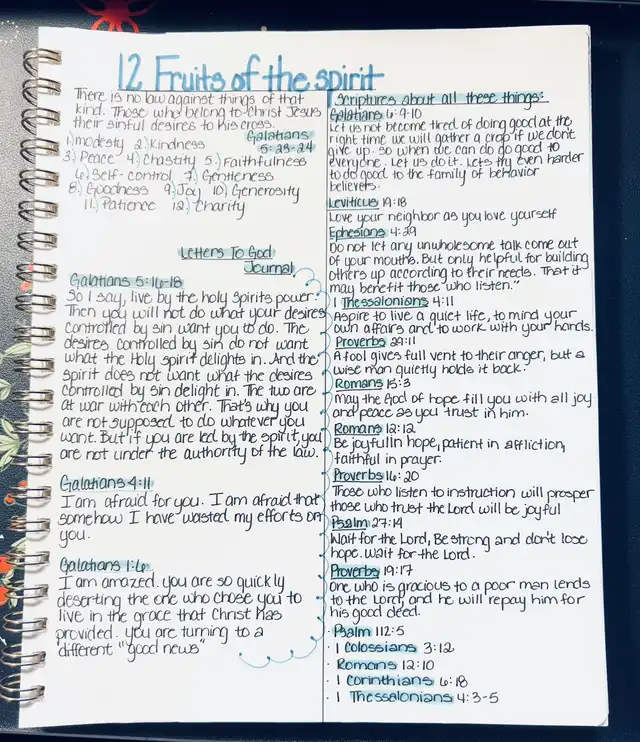 12 Fruits of the spirit
There is no law against things of that
kind. Those who belong to Christ Jesus
their sinful desires to his cross.
Galatians
5:23-24
1) modesty 2) Kindness
3) Peace 4) Chastity 5.) Faithfulness
6) Self-control 7) Gentleness
8.) Goodness 9) Joy 10) Generosity
11.) Patience 12.) Charity
Letters To God
Journal
Galatians 5:16-18
So I say, live by the holy spirits power.
Then you will not do what your desires
controlled by sin want you to do. The
desires controlled by sin do not want
what the Holy spirit delights in. And the
spirit does not want what the desires
controlled by sin delight in. The two are
at war with each other. That's why you
are not supposed to do whatever you
want. But if you are led by the spirit, you
are not under the authority of the law.
Galatians 4:11
I am afraid for you. I am afraid that
somehow I have wasted my efforts on
you.
Galatians 1:6
I am amazed. you are so quickly
deserting the one who chose you to
live in the grace that Christ has
provided. you are turning to a
different "good news"
Scriptures about all these things:
Galatians 6:9-10
Let us not become tired of doing good at the
right time we will gather a crop if we don't
give up. so when we can do go good to
everyone. Let us do it. Lets try even harder
to do good to the family of behavior
believers.
Leviticus 19:18
Love your neighbor as you love yourself
Ephesians 4:29
Do not let any unwholesome talk come out
of your mouths. But only helpful for building
others up according to their needs. That it
may benefit those who listen."
1 Thessalonians 4:11
Aspire to live a quiet life, to mind your
own affairs and to work with your hands.
Proverbs 29:11
A fool gives full vent to their anger, but a
wise man quietly holds it back.
Romans 15:3
May the God of hope fill you with all joy
and peace as you trust in him.
Romans 12:12
Be joyful in hope, patient in affliction,
faithful in prayer.
Proverbs 16:20
Those who listen to instruction will prosper
those who trust the Lord will be joyful
Psalm 27:14
Wait for the Lord, Be strong and don't lose
hope. Wait for the Lord.
Proverbs 19:17
One who is gracious to a poor man lends
to the Lord, and he will repay him for
his good deed.
· Psalm 112:5
· 1 Colossians 3:12
· Romans 12:10
· 1 Corinthians 6:18
· 1 Thessalonians 4:3-5